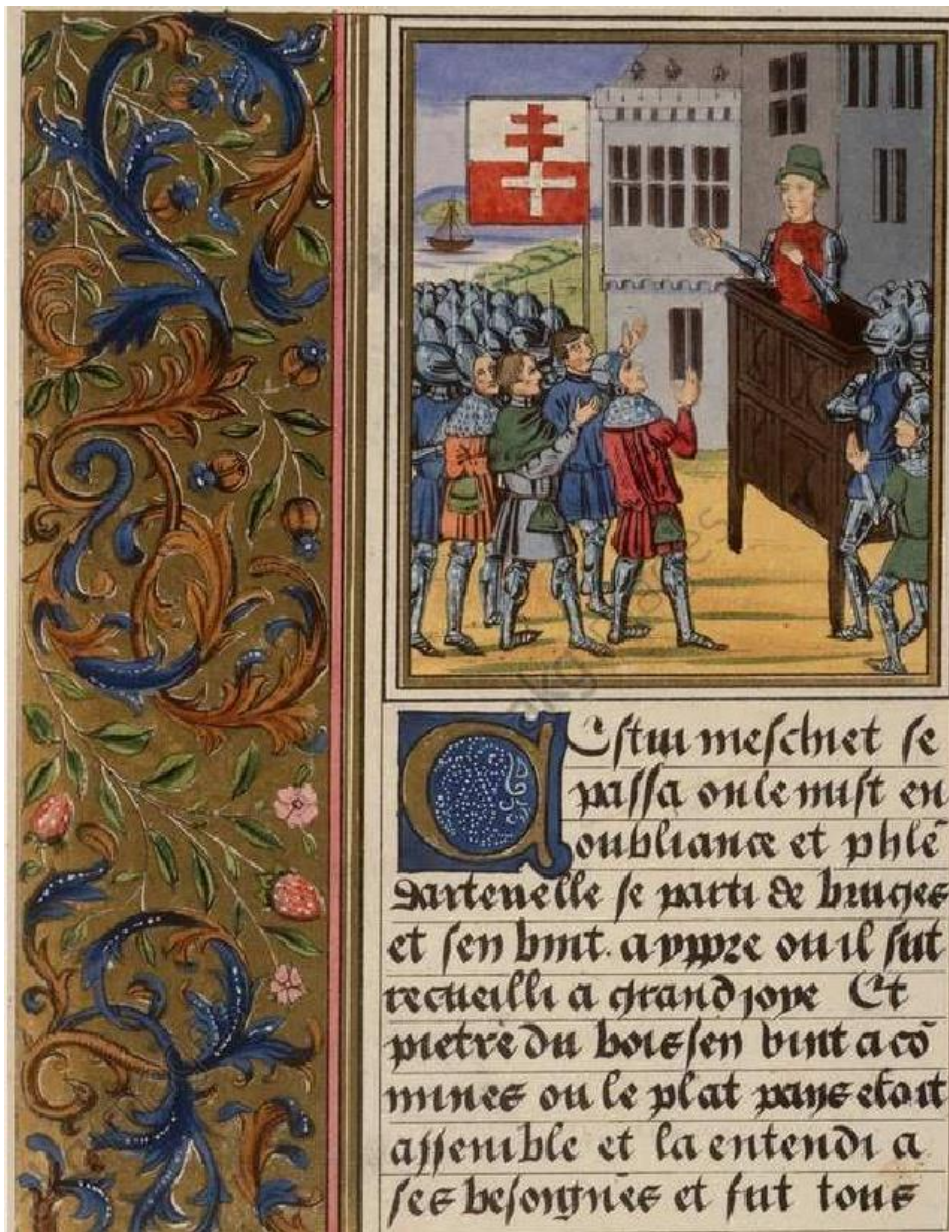 Cestui meschief se
passa on le mist en
oubliance et phle
dartevelle se parti de bruges
et sen vint a yppre ou il fut
recueilli a grand joye Et
pietre du bois sen vint a cõ
mines ou le plat pays estoit
assemble et la entendi a
ses besongnes et fut tous
akg images